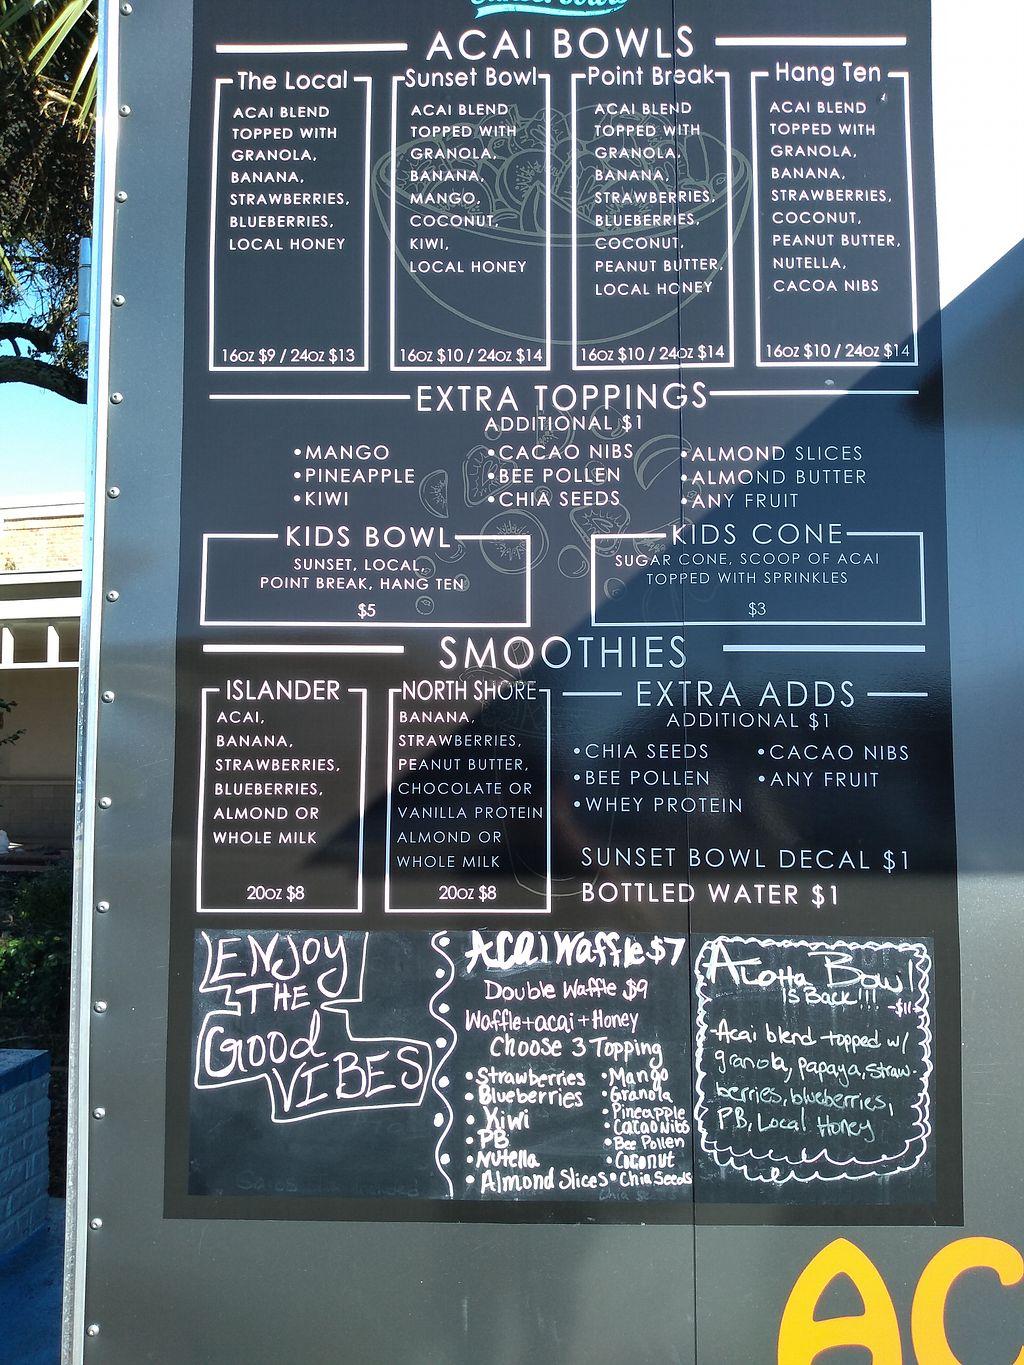 ACAI BOWLS
The Local
ACAI BLEND
TOPPED WITH
GRANOLA,
BANANA,
STRAWBERRIES,
BLUEBERRIES,
LOCAL HONEY
16oz $9 / 24oz $13
Sunset Bowl
ACAI BLEND
TOPPED WITH
GRANOLA,
BANANA,
MANGO,
COCONUT,
KIWI,
LOCAL HONEY
16oz $10 / 24oz $14
Point Break
ACAI BLEND
TOPPED WITH
GRANOLA,
BANANA,
STRAWBERRIES,
BLUEBERRIES,
COCONUT,
PEANUT BUTTER,
LOCAL HONEY
16oz $10 / 24oz $14
Hang Ten
ACAI BLEND
TOPPED WITH
GRANOLA,
BANANA,
STRAWBERRIES,
COCONUT,
PEANUT BUTTER,
NUTELLA,
CACOA NIBS
16oz $10 / 24oz $14
EXTRA TOPPINGS
ADDITIONAL $1
•MANGO
•PINEAPPLE
•KIWI
•CACAO NIBS
•BEE POLLEN
•CHIA SEEDS
•ALMOND SLICES
•ALMOND BUTTER
•ANY FRUIT
KIDS BOWL
SUNSET, LOCAL,
POINT BREAK, HANG TEN
$5
KIDS CONE
SUGAR CONE, SCOOP OF ACAI
TOPPED WITH SPRINKLES
$3
SMOOTHIES
ISLANDER
ACAI,
BANANA,
STRAWBERRIES,
BLUEBERRIES,
ALMOND OR
WHOLE MILK
20oz $8
NORTH SHORE
BANANA,
STRAWBERRIES,
PEANUT BUTTER,
CHOCOLATE OR
VANILLA PROTEIN
ALMOND OR
WHOLE MILK
20oz $8
EXTRA ADDS
ADDITIONAL $1
•CHIA SEEDS
•BEE POLLEN
•WHEY PROTEIN
•CACAO NIBS
•ANY FRUIT
SUNSET BOWL DECAL $1
BOTTLED WATER $1
ENJOY
THE
Good
VIBES
Acai Waffle $7
Double Waffle $9
Waffle+acai+Honey
Choose 3 Topping
•Strawberries
•Blueberries
•Kiwi
•PB
•Nutella
•Almond Slices
•Mango
•Granola
•Pineapple
•Cacao Nibs
•Bee Pollen
•Coconut
•Chia Seeds
Alotta Bowl
Is Back!!!
-$11-
-Acai blend topped w/
granola, papaya, straw-
berries, blueberries,
PB, Local Honey
AC